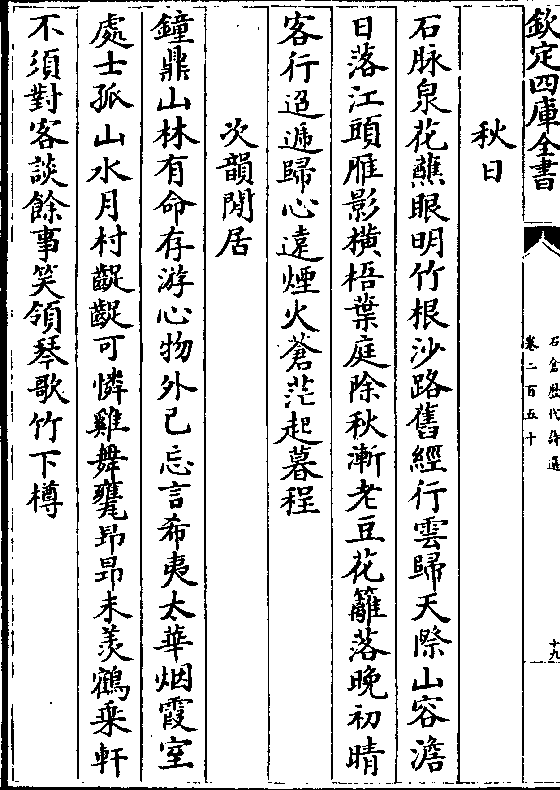 欽定四庫全書
石倉歷代詩選
卷二百五十
十九
秋日
石脉泉花蘸眼明竹根沙路舊經行雲歸天際山容澹
日落江頭雁影横梧葉庭除秋漸老豆花籬落晚初晴
客行迢遞歸心遠煙火蒼茫起暮程
次韻閒居
鐘鼎山林有命存游心物外已忘言希夷太華烟霞室
處士孤山水月村齪齪可憐雞舞甕昂昂未羡鶴乘軒
不須對客談餘事笑領琴歌竹下樽